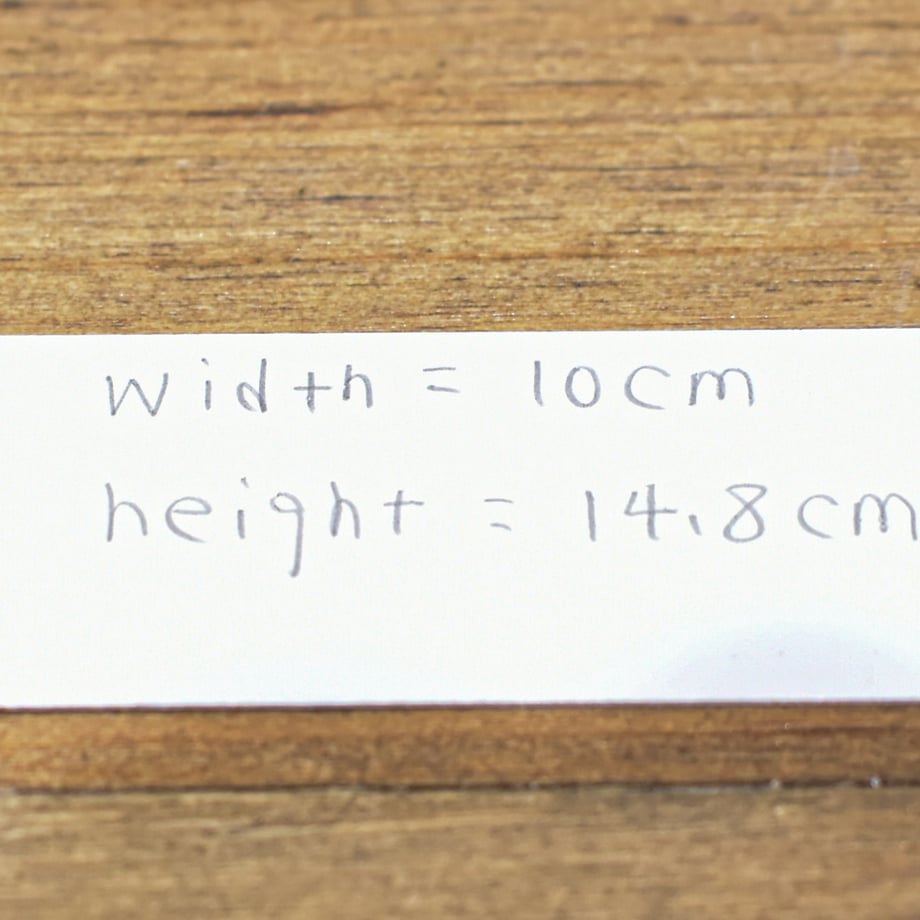 width = 10cm
height = 14.8cm